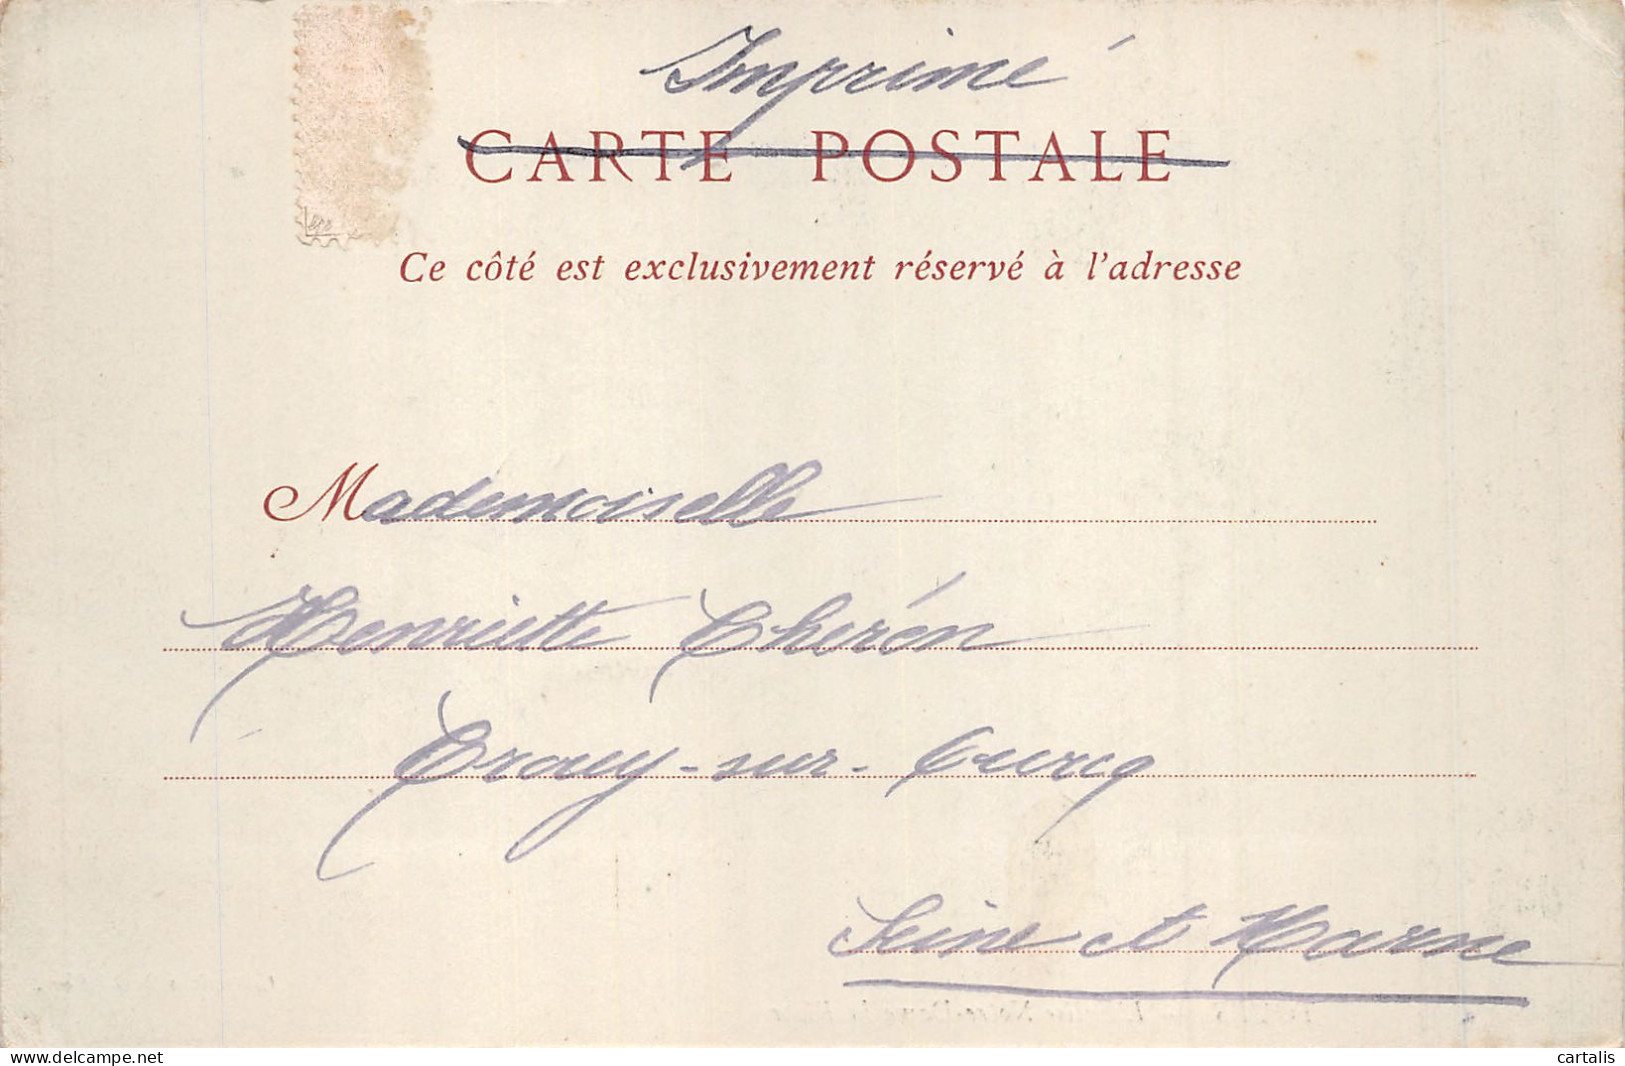 Imprimé
CARTE POSTALE
Ce côté est exclusivement réservé à l'adresse
Mademoiselle
Henriette Cherén
Crouy-sur-Ourcq
Seine et Marne
delcampe.net
cartalis